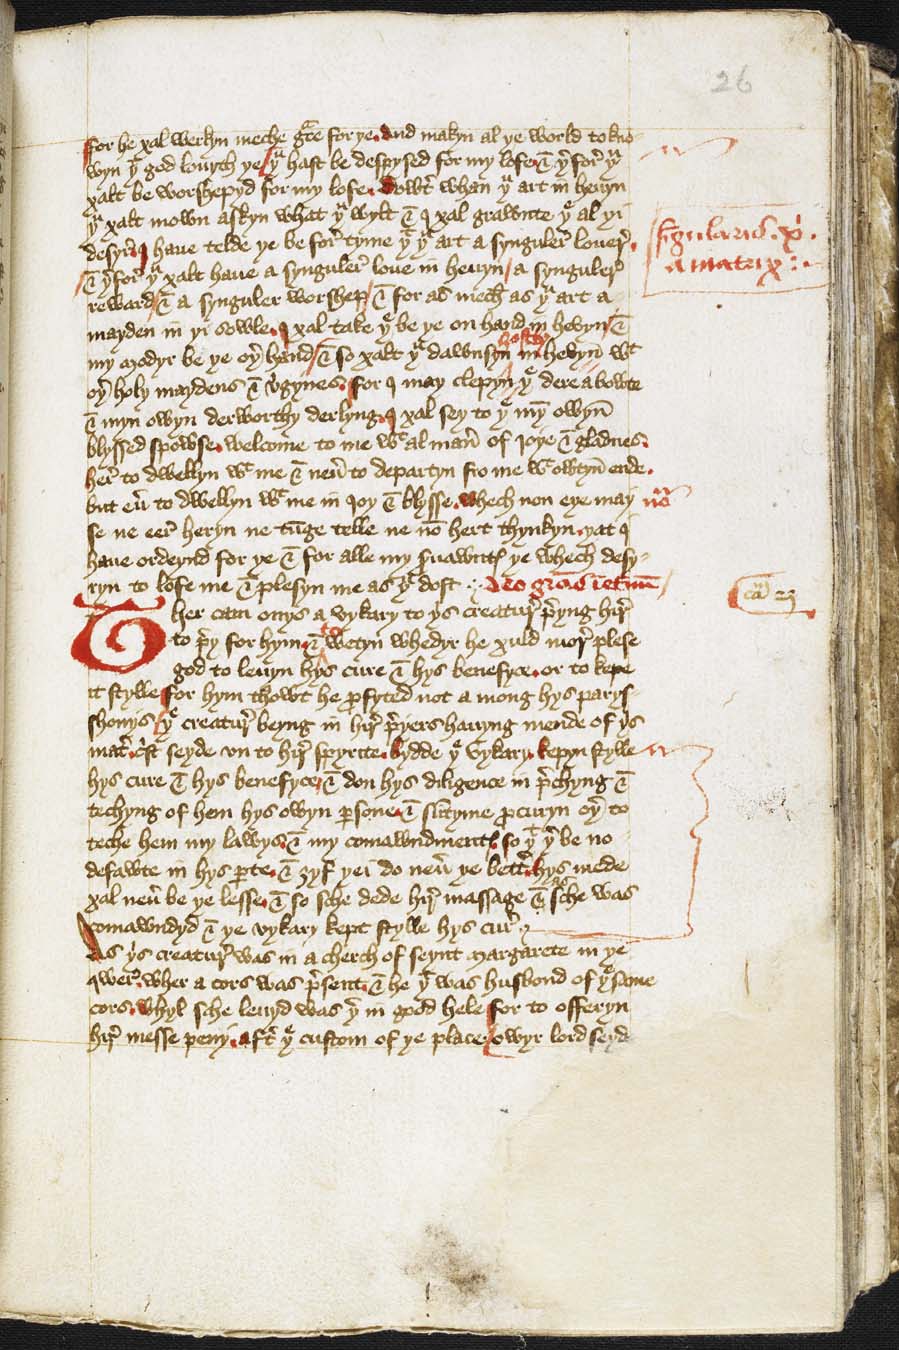 26
for he xal werkyn meche gce for ye. And makyn al ye world to kno-
wyn yt god louyth ye / yu hast be despysed for my lofe. & yerfor yu
xalt be worshepyd for my lofe. Dowtr whan yu art in heuyn
yu xalt mown askyn what yu wylt & I xal grawnte ye al yi
desyr. I haue telde ye be for tyme yt yu art a synguler louer.
singularis xi.
amatrix:.
& yerfor yu xalt haue a synguler loue in heuyn / a synguler
reward / & a synguler worshep / & for as mech as yu art a
mayden in yi sowle. I xal take ye be ye on hand in hevyn / &
my modyr be ye oyr hand / & so xalt yu dawnsyn in hevyn wt
oyr holy maydens & vgynes. for I may clepyn ye dere a bowte
& myn owyn derworthy derlyng. I xal sey to ye myn owyn
blyssed spowse. welcome to me wt al manr of joye & gladnes.
her to dwellyn wt me & neur to departyn fro me wt owtyn ende.
but eur to dwellyn wt me in joy & blysse. whech non eye may
se ne eer heryn ne tunge telle ne no hert thynkyn. yat I
haue ordeynd for ye & for alle my seruawntes ye whech desy-
ryn to lofe me & plesyn me as yu dost
ca 23
Ther cam onys a vykary to ys creatur preyng hir
to prey for hym. & wetyn whedyr he xuld mor plese
god to leuyn hys cure & hys benefyce. or to kepe
it stylle for hym thowt he profyted not a mong hys parys-
shonys / ye creatur beyng in hir preyers hauyng mende of ys
mater. crist seyde vn to hir spyrite. bydde ye vykary. kepyn stylle
hys cure & hys benefyce. & don hys diligence in prechyng &
techyng of hem hys owyn persone. & sumtyme procuryn oyr to
teche hem my lawys. & my comawndmentes. so yt yer be no
defawte in hys parte. & zyf yei do neur ye bettr. hys mede
xal neur be ye lesse. & so sche dede hir massage as sche was
comawndyd & ye vykary kept stylle hys cur
As ys creatur was in a cherch of seynt Margarete in ye
qwer. wher a cors was present. & he yt was husbond of ye same
cors. whyl sche leuyd was yer in good hele for to offeryn
hir messe peny. aftr ye custom of ye place. / owyr lord seyd